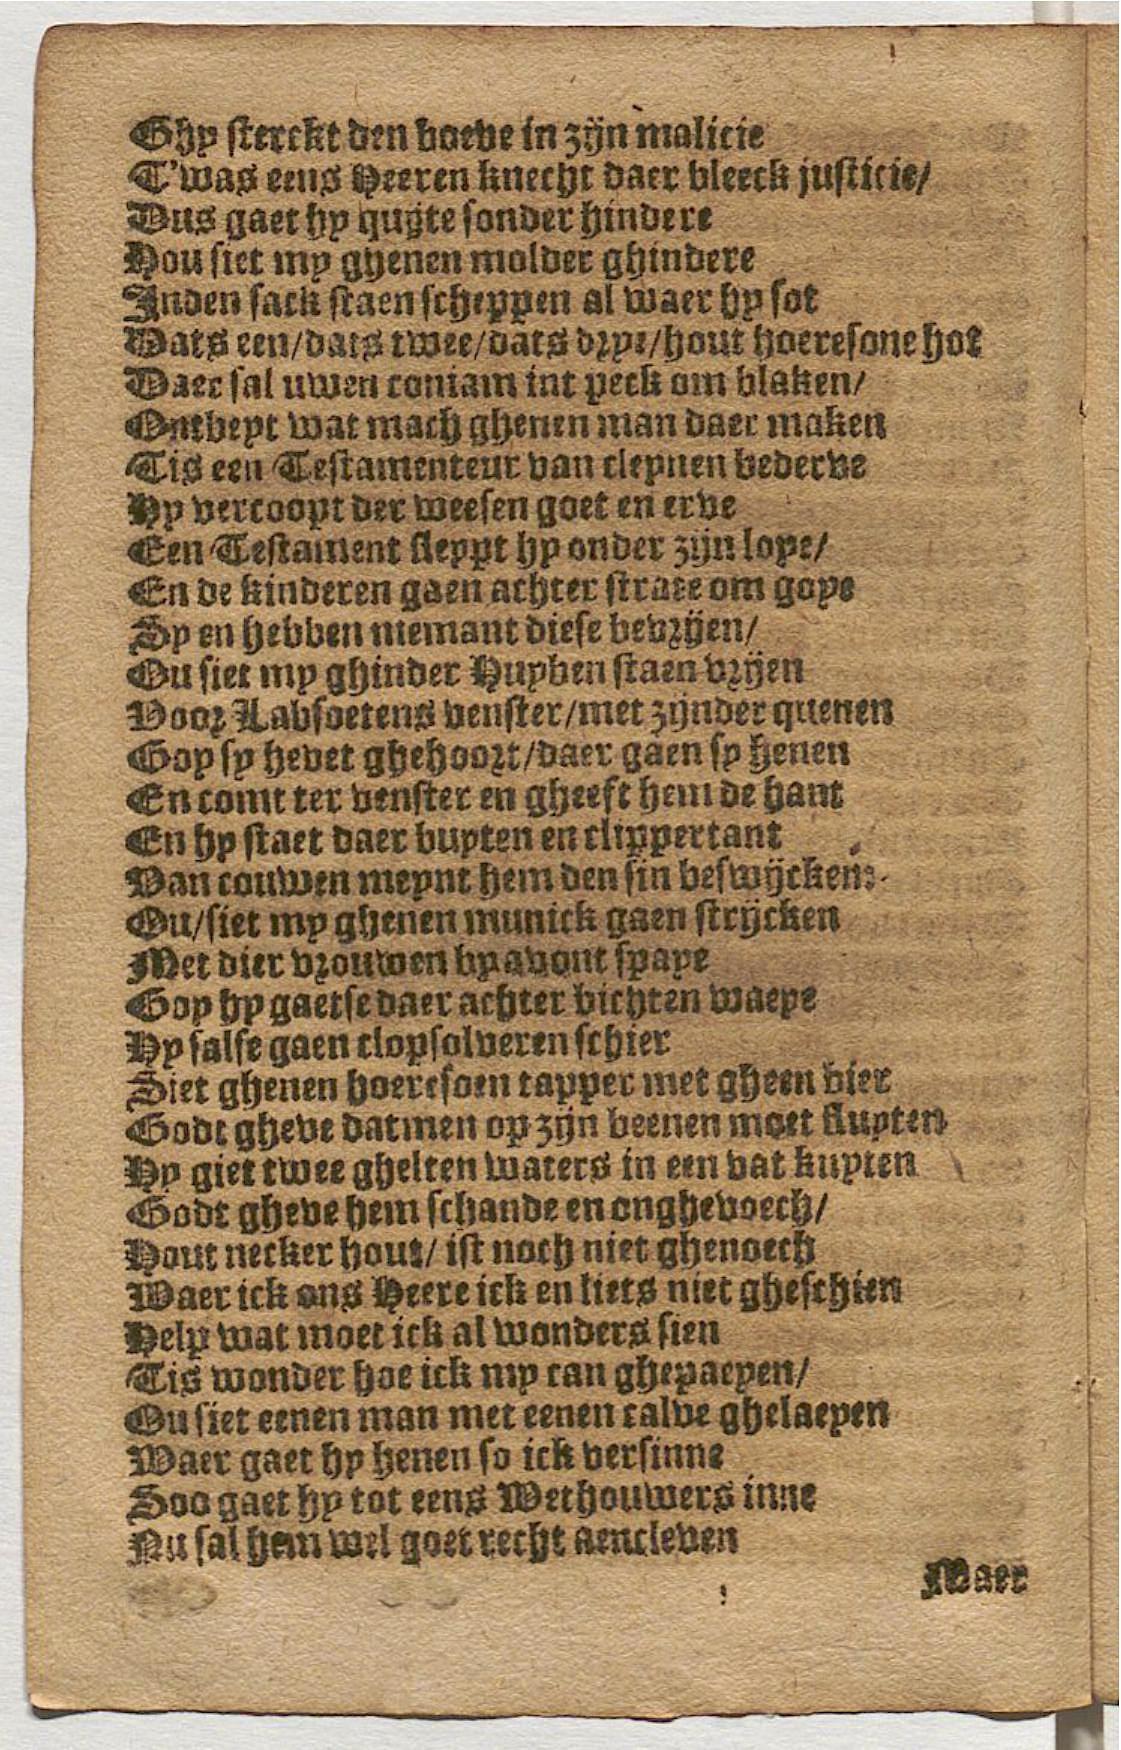 Ghy sterckt den boeve in zijn malicie
T'was eens Heeren knecht daer bleeck justicie/
Dus gaet hy quijte sonder hindere
Hou siet my ghenen molder ghindere
Inden sack staen scheppen al waer hy sot
Dats een/dats twee/dats drye/hout hoeresone hot
Daer sal uwen coniam int peck om blaken/
Ontbeyt wat mach ghenen man daer maken
Tis een Testamenteur van cleynen bederve
Hy vercoopt der weesen goet en erve
Een Testament sleypt hy onder zijn lope/
En de kinderen gaen achter strate om gope
Sy en hebben niemant diese bevrijen/
Ou siet my ghinder Huyben staen vrijen
Voor Labsoetens venster/met zijnder quenen
Goy sy hevet ghehoort/daer gaen sy henen
En comt ter venster en gheeft hem de hant
En hy staet daer buyten en clippertant
Van couwen meynt hem den sin beswijcken:
Ou/siet my ghenen munick gaen strijcken
Met dier vrouwen by avont spaye
Goy hy gaetse daer achter bichten waeye
Hy salse gaen clopsolveren schier
Siet ghenen hoeresoen tapper met gheen bier
Godt gheve datmen op zijn beenen moet sluyten
Hy giet twee ghelten waters in een vat kuyten
Godt gheve hem schande en onghevoech/
Hout necker hout/ ist noch niet ghenoech
Waer ick ons Heere ick en liets niet gheschien
Help wat moet ick al wonders sien
Tis wonder hoe ick my can ghepaeyen/
Ou siet eenen man met eenen calve ghelaeyen
Waer gaet hy henen so ick versinne
Soo gaet hy tot eens Wethouwers inne
Nu sal hem wel goet recht aencleven
Maer